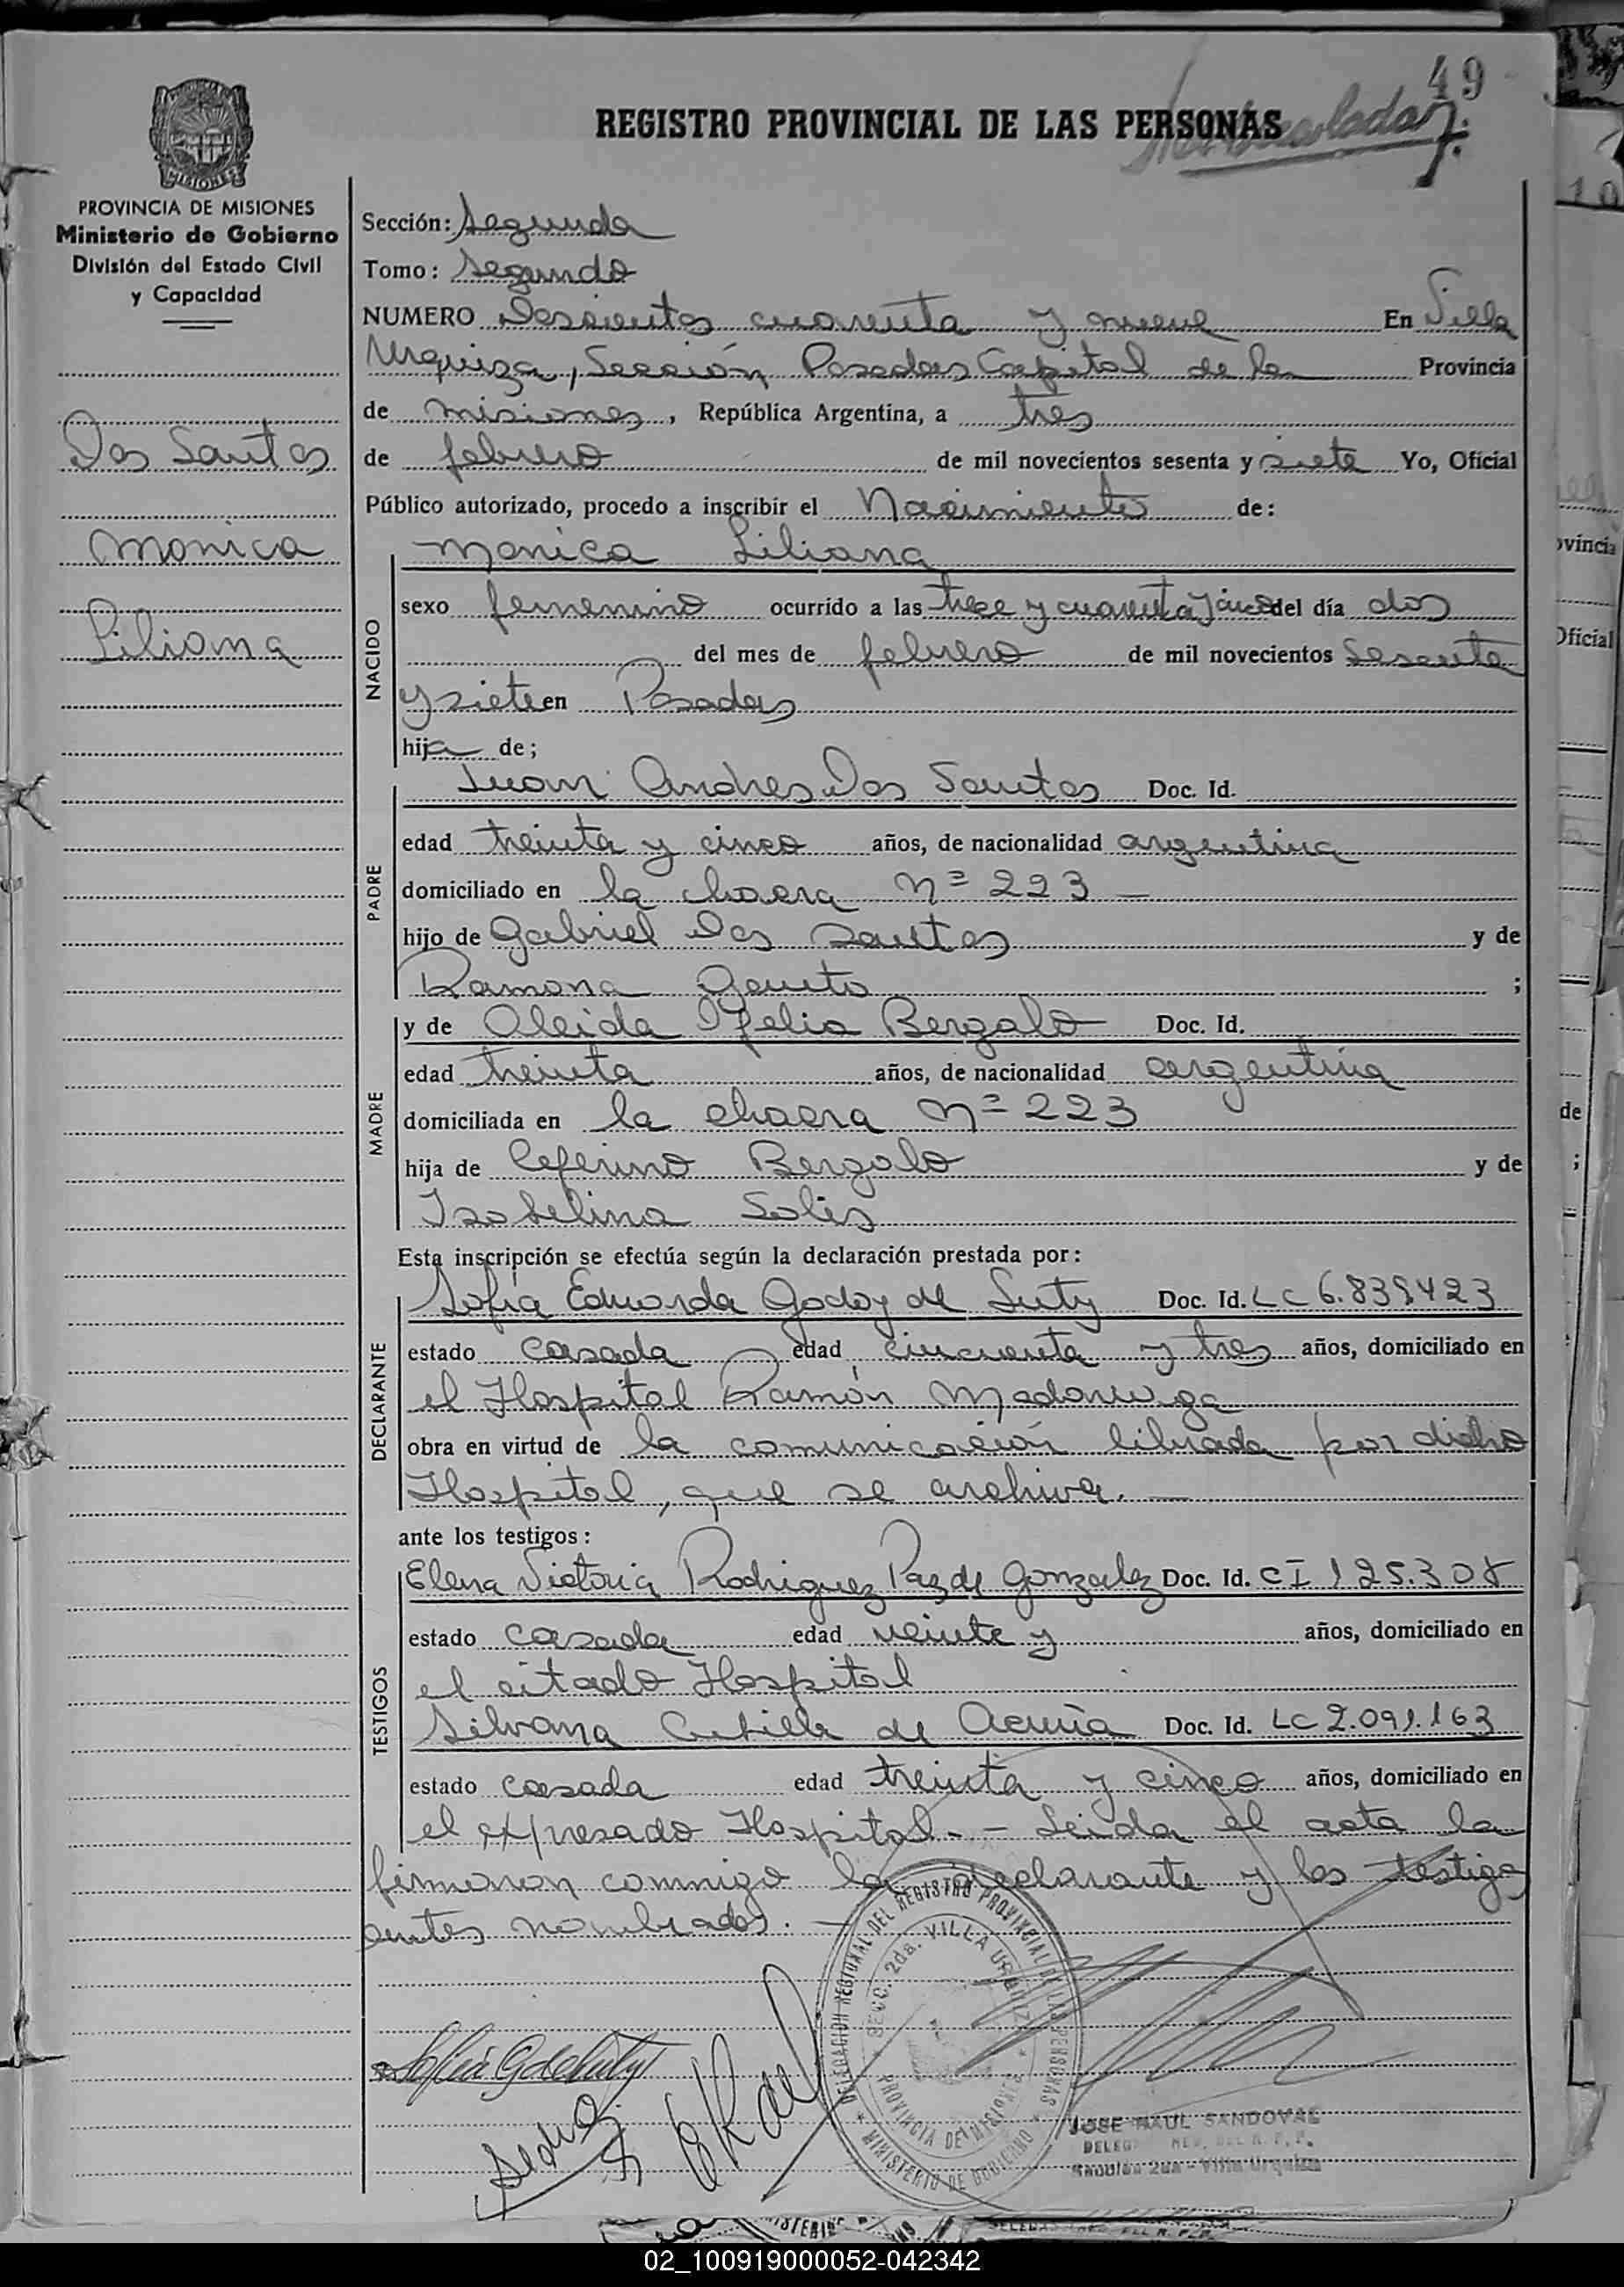 49
REGISTRO PROVINCIAL DE LAS PERSONAS
MISIONES
PROVINCIA DE MISIONES
Ministerio de Gobierno
División del Estado Civil
y Capacidad
Dos Santos
Monica
Liliana
Sección: Segunda
Tomo: Segundo
NUMERO Doscientos cuarenta y nueve En Villa
Urquiza, Sección Posadas Capital de la Provincia
de Misiones, República Argentina, a tres
de febrero de mil novecientos sesenta y siete Yo, Oficial
Público autorizado, procedo a inscribir el Nacimiento de:
NACIDO
Monica Liliana
sexo femenino ocurrido a las trece y cuarenta y cinco del día dos
del mes de febrero de mil novecientos Sesenta
y siete en Posadas
hija de;
PADRE
Juan Andres Dos Santos Doc. Id.
edad treinta y cinco años, de nacionalidad argentina
domiciliado en la chacra Nº 223 —
hijo de Gabriel Dos Santos y de
Ramona ;
MADRE
y de Bergalo Doc. Id.
edad treinta años, de nacionalidad argentina
domiciliada en la chacra Nº 223
hija de Ceferino Bergalo y de
Isabelina Solis
Esta inscripción se efectúa según la declaración prestada por:
DECLARANTE
Sofía Eduarda Godoy de Doc. Id. LC 6.839.423
estado casada edad cincuenta y tres años, domiciliado en
el Hospital Ramón Madariaga
obra en virtud de la comunicación librada por dicho
Hospital, que se archiva. —
ante los testigos:
TESTIGOS
Elena Victoria Rodriguez Paz de Gonzalez Doc. Id. CI 125.308
estado casada edad veinte y años, domiciliado en
el citado Hospital
Silvana de Acuña Doc. Id. LC 2.091.163
estado casada edad treinta y cinco años, domiciliado en
el expresado Hospital. - - Leida el acta la
firmaron conmigo la declarante y los testigos
antes nombrados. —
DELEGACION REGIONAL DEL REGISTRO PROVINCIAL DE LAS PERSONAS
SECC. 2da. VILLA URQUIZA
PROVINCIA DE MISIONES
MINISTERIO DE GOBIERNO
JOSE RAUL SANDOVAL
Sección 2da - Villa Urquiza
02_100919000052-042342